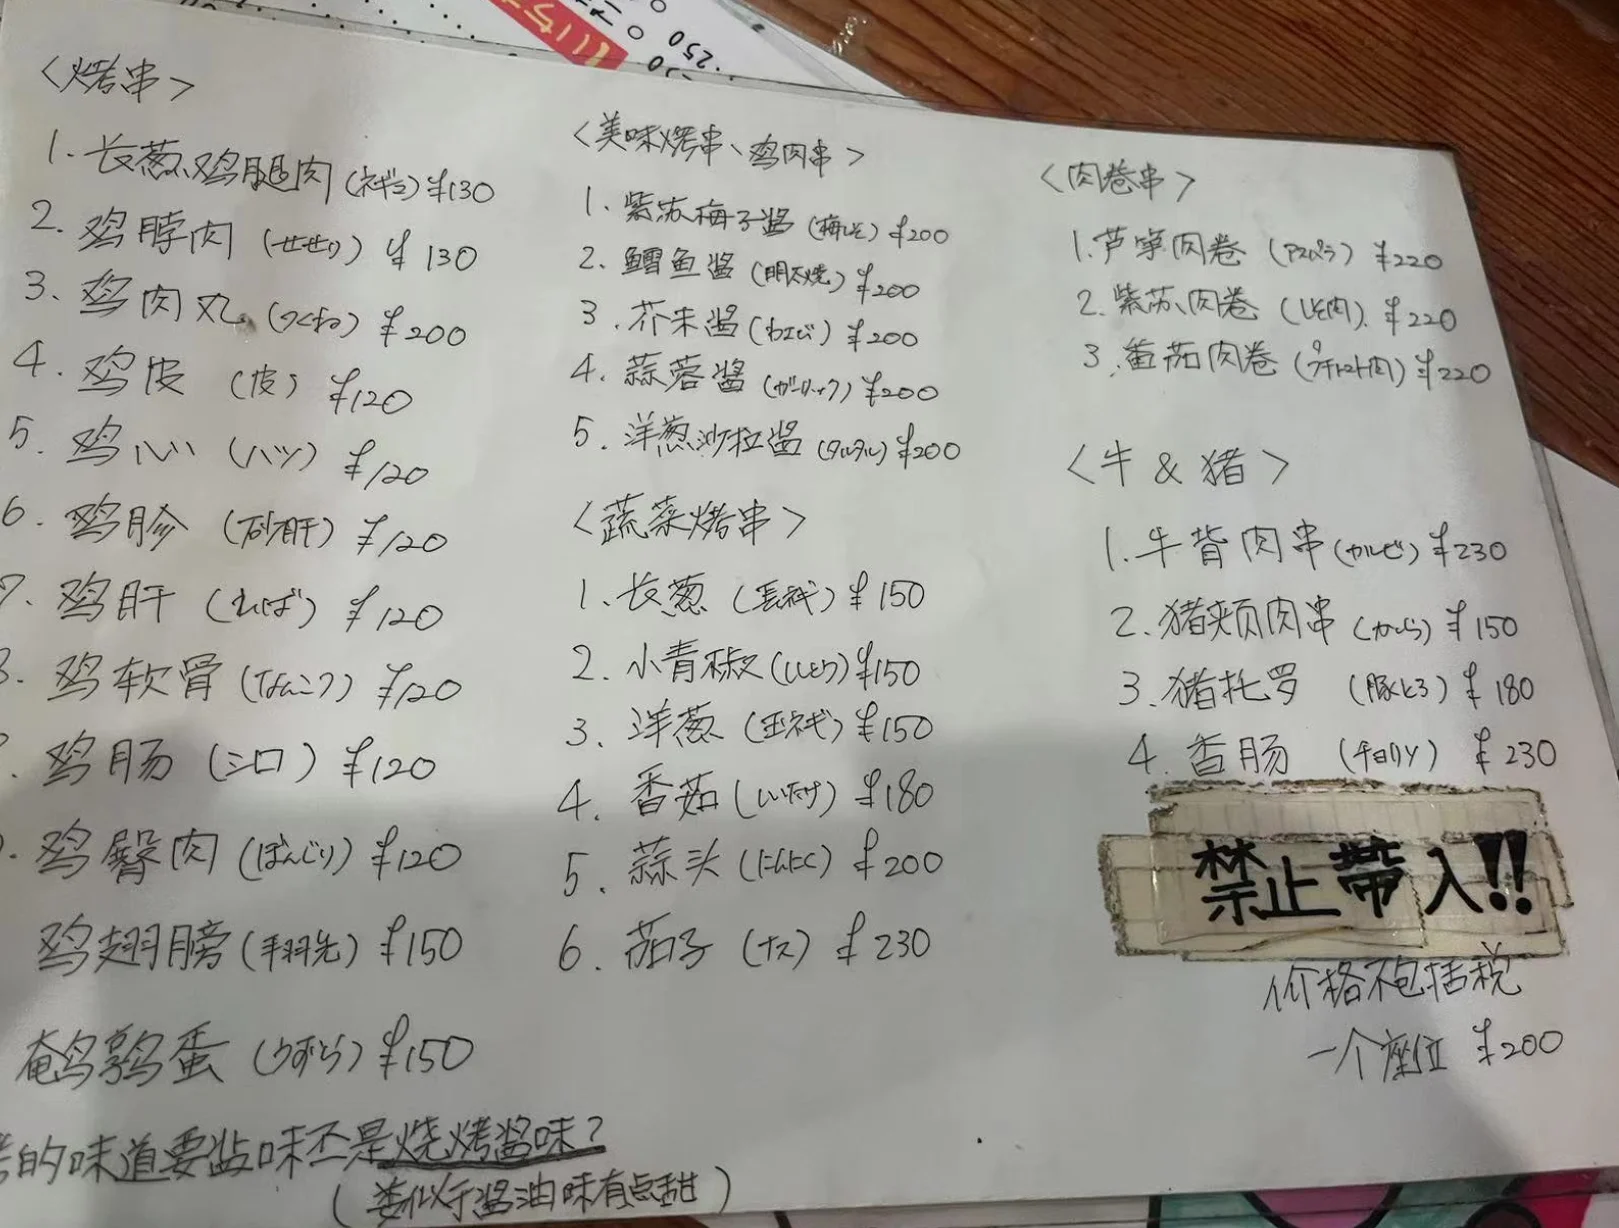 〈烤串〉
1. 长葱、鸡腿肉 (ネギま) ¥130
2. 鸡脖肉 (せせり) ¥130
3. 鸡肉丸 (つくね) ¥200
4. 鸡皮 (皮) ¥120
5. 鸡心 (ハツ) ¥120
6. 鸡胗 (砂肝) ¥120
7. 鸡肝 (ればー) ¥120
鸡软骨 (なんこつ) ¥120
鸡肠 (シロ) ¥120
鸡臀肉 (ぼんじり) ¥120
鸡翅膀 (手羽先) ¥150
鹌鹑蛋 (うずら) ¥150
的味道要盐味还是烧烤酱味?
(类似于酱油味有点甜)
〈美味烤串、鸡肉串〉
1. 紫苏梅子酱 (梅しそ) ¥200
2. 鳕鱼酱 (明太焼) ¥200
3. 芥末酱 (わさび) ¥200
4. 蒜蓉酱 (ガーリック) ¥200
5. 洋葱沙拉酱 (タルタル) ¥200
〈蔬菜烤串〉
1. 长葱 (長ネギ) ¥150
2. 小青椒 (ししとう) ¥150
3. 洋葱 (玉ネギ) ¥150
4. 香菇 (しいたけ) ¥180
5. 蒜头 (にんにく) ¥200
6. 茄子 (ナス) ¥230
〈肉卷串〉
1. 芦笋肉卷 (アスパラ) ¥220
2. 紫苏肉卷 (しそ肉) ¥220
3. 番茄肉卷 (プチトマト肉) ¥220
〈牛 & 猪〉
1. 牛背肉串 (カルビ) ¥230
2. 猪颊肉串 (かしら) ¥150
3. 猪托罗 (豚とろ) ¥180
4. 香肠 ¥230
禁止帶入!!
价格不包括税
一个座位 ¥200